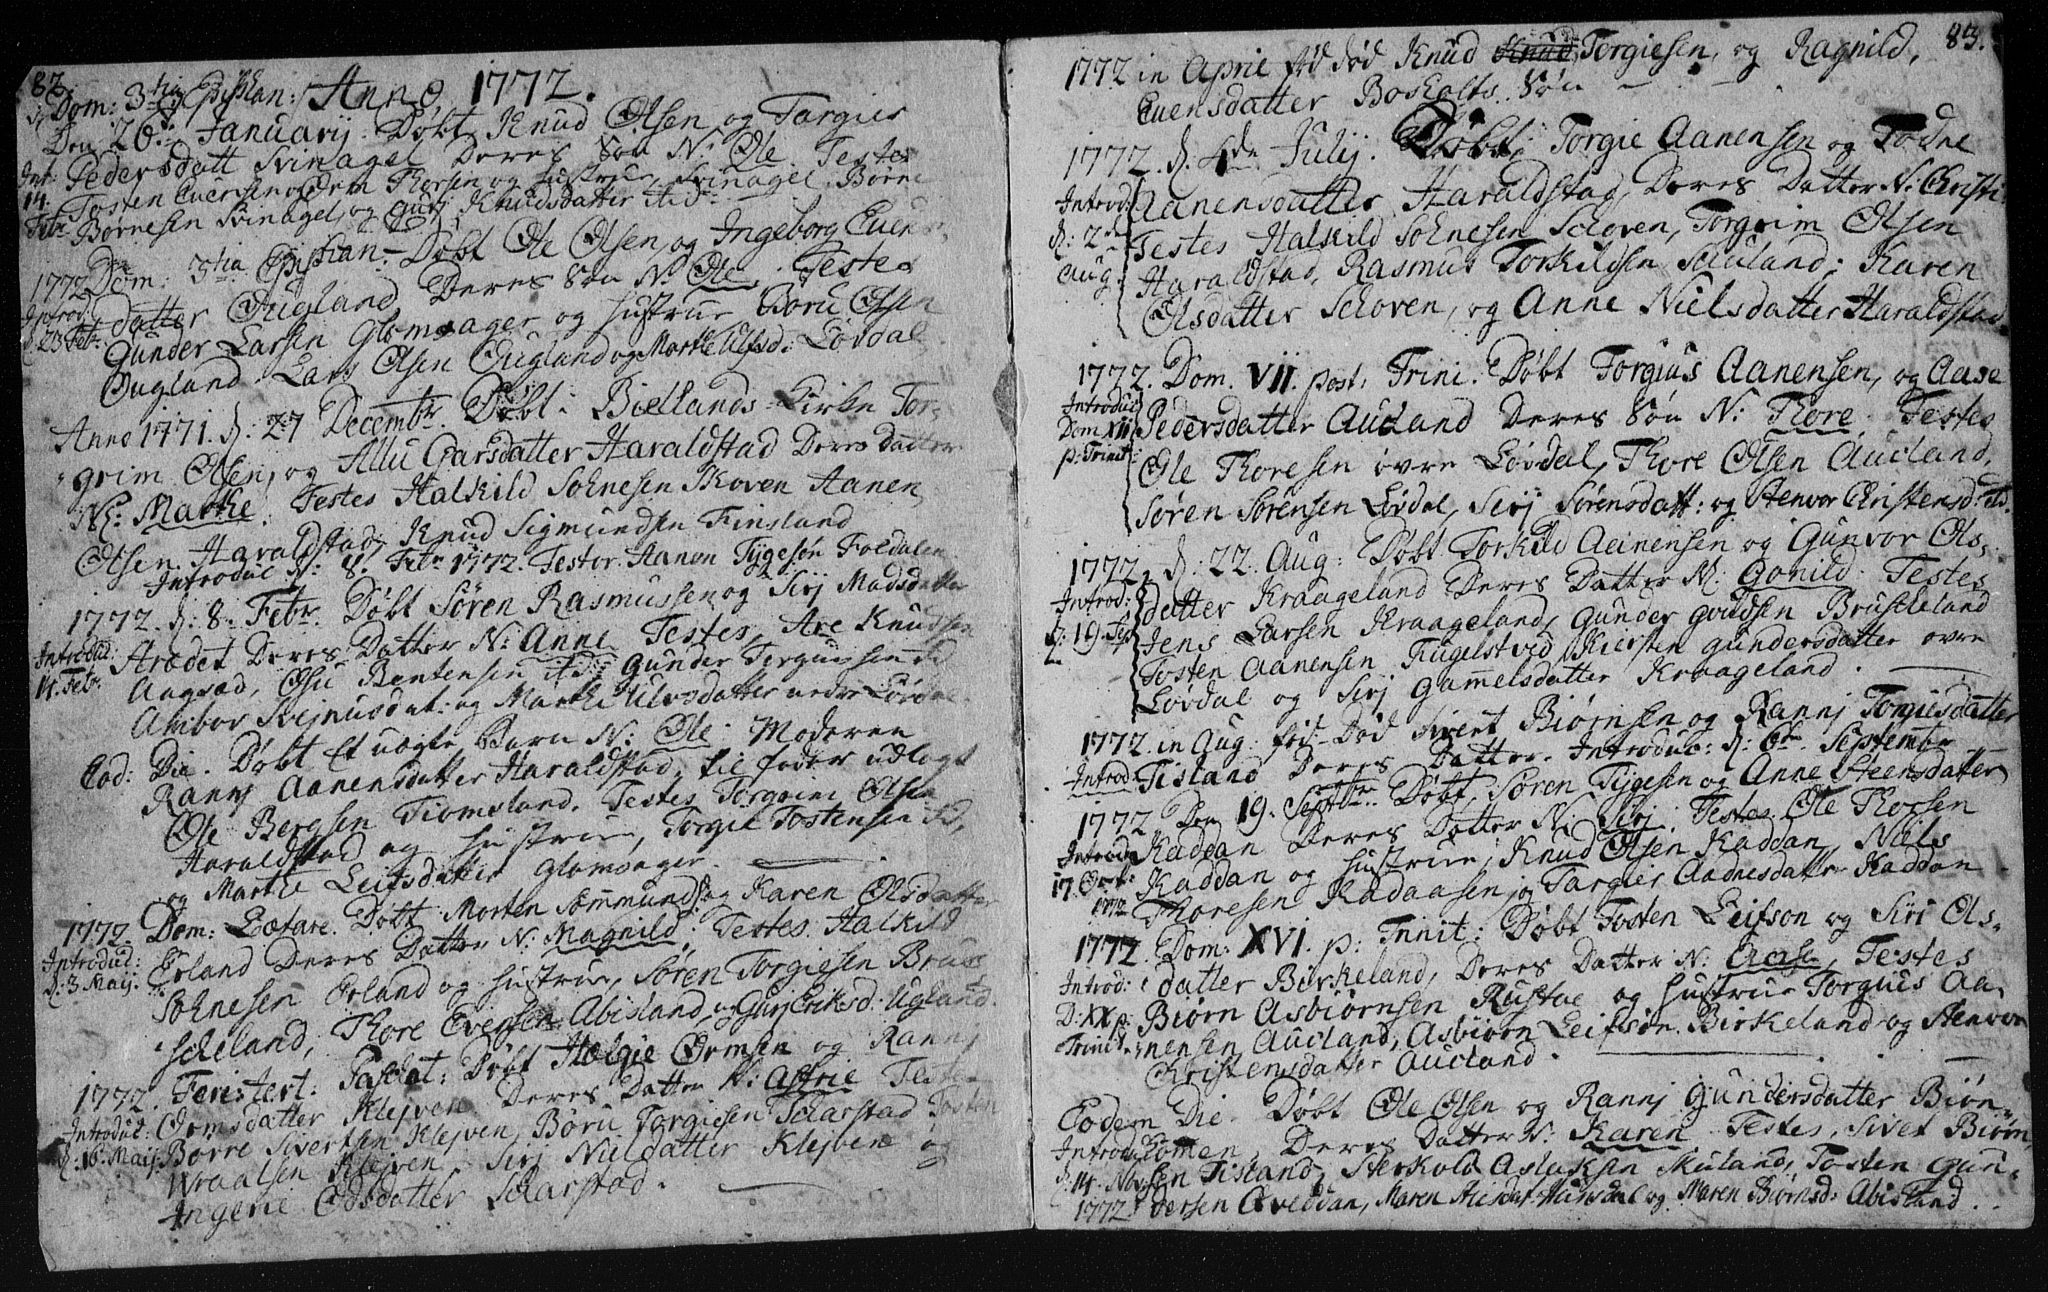 82.
Dom: 3tia Epiphan: Anno 1772.
Den 20de Januarij Døbt Knud Olsen og Targier
Pedersdatt Svinagel Deres Søn N: Ole Testes
Int: 14. Febr
Tosten Euersen Thorsen og Hustrue, Svinagel, Børne
Børnesen Svinagel, og Gurj Knudsdatter
1772 Dom: 3tia Epiphan- Døbt Ole Olsen, og Ingeborg Euens
Introd: d: 23 Febr:
datter Ougland Deres Søn N: Ole. Testes
Gunder Larsen Glomsager og Hustrue Boru Olsen
Ougland. Lars Olsen Ougland og Marthe Ulfsd: Løvdal
Anno 1771. d: 27 Decembr. Døbt i Biellands-Kirke Tor-
grim Olsen, og Allu Garsdatter Haraldstad Deres Datter
N: Marthe. Testes Halkild Sohnesen Skoven Aanen
Olsen Haraldstad, Knud Sigmundsen Finsland
Introduc d: 8. Febr 1772. Testor Hanon Tygesøn Foldalen
1772. d: 8. Febr. Døbt Søren Rasmussen og Sirj Madsdatter
Introdud: 14. Febr.
Arædet Deres Datter N: Anne Testes, Are Knudsen
Aagsæd, Osu Bentensen ibd: Gunder Torguysen ibd
Ambor Svejnusdat: og Marthe Ulvsdatter neder Løvdal
Eod: Die. Døbt Et uægte Barn N: Ole. Moderen
Rannj Aanensdatter Haraldstad, til fader udlagt
Ole Bergsen Tiomsland. Testes Torgrim Olsen
Haraldstad og Hustrue, Torgie Tostensen ibd,
og Marthe Leifsdatter Glomsager.
1772 Dom: Lætare. Døbt Morten Sommunds: og Karen Olsdatter
Introduc: d: 3 Maij.
Erland Deres Datter N: Magnild. Testes. Halkild
Sohnesen Erland og Hustrue, Søren Torgiesen Brus
scheland, Thore Evensen Abisland og Gurj Eriksd: Ugland.
1772. Feristert: Paschat: Døbt Helgie Ormsen og Rannj
Introduc: d: 16. Maij
Ormsdatter Klejven Deres Datter N: Astrie Testes
Børre Sivertsen Klejven, Børu Torgiesen Scharstad Tosten
Wraalsen Klejven, Sirj Nielsdatter Klejven og
Ingerie Odsdatter Scharstad.
83.
1772 in April fød død Knud Knud Torgiesen, og Ragnild,
Euensdatter Bosholts Søn
1772. d. 4de Julij. Døbt Torgie Aanensen og Todne
Introd: d: 2de Aug:
Aanensdatter Haraldstad, Deres Datter N: Christi:
Testes Halkild Sohnesen Schoven, Torgrim Olsen
Haraldstad, Rasmus Torkildsen Scauland; Karen
Olsdatter Schoven, og Anne Nielsdatter Haraldstad
1772. Dom. VII. post. Trini. Døbt Torgius Aanensen, og Aase
Introduc Dom XII p: Trinit:
Pedersdatter Aucland Deres Søn N: Thore. Testes
Ole Thoresen øvre Løvdal, Thore Olsen Aucland,
Søren Sørensen Løvdal, Sirj Sørensdatt: og Stenvor Christensd: ibd.
1772. d: 22. Aug: Døbt Torkild Aanensen og Gunvor Ols-
Introd: d: 19. Sep
datter Kraageland Deres Datter N: Gonild. Testes
Jens Larsen Kraageland, Gunder Gvildsen Brustheland
Tosten Aanensen Fugelstved Kiersten Gundersdatter øvre
Løvdal og Sirj Gammelsdatter Kraageland.
1772 in Aug: fød-Død Sivert Biørnsen og Rannj Torgiesdatter
Introd
Tisland Deres Datter. Introduc: d: 6te Septembr
1772 Den 19. Septbr. Døbt Søren Tygesen og Anne Steensdatter
Introdu 17. Oct: 1772
Kaddan Deres Datter N: Sirj. Testes. Ole Thorsen
Kaddan og Hustrue, Knud Olsen Kaddan, Niels
Thoresen Kadaasen, og Targier Aadnesdatter Kaddan
1772. Dom: XVI. p: Trinit: Døbt Tosten Leifson og Siri Ols-
Introd: D: XX p: Trinit.
datter Birkeland, Deres Datter N: Aase, Testes
Biørn Asbiørnsen Rustae og Hustrue Torgius Aa-
nensen Aucland, Asbiørn Leifsøn Birkeland og Stenvor
Christensdatter Aucland.
Eodem Die. Døbt Ole Olsen og Rannj Gundersdatter Biøn-
Introdu d: 14. Nov: 1772
tomen, Deres Datter N: Karen Testes, Siver Biørn
sen Tisland, Sterkold Aslaksen Skuland, Tosten Gun-
dersen Aveddan, Maren og Maren Biørnsd: Abisland.